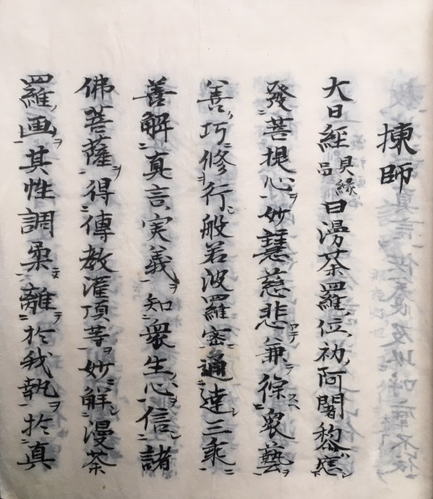 揀師
大日經具緣品曰漫荼羅位初阿闍黎應
發菩提心妙慧慈悲兼綜衆藝
善巧修行般若波羅密通達三乘
善解真言実義知衆生心信諸
佛菩薩得傳教灌頂等妙解漫荼
羅画其性調柔離於我執於真